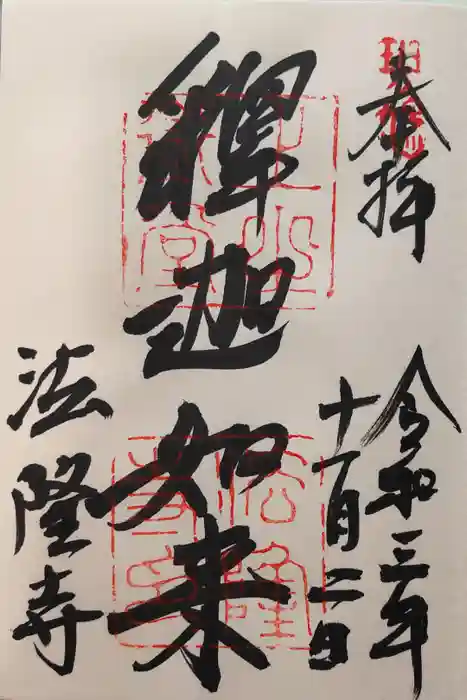 奉拝
令和三年
十一月二日
釋迦如来
法隆寺